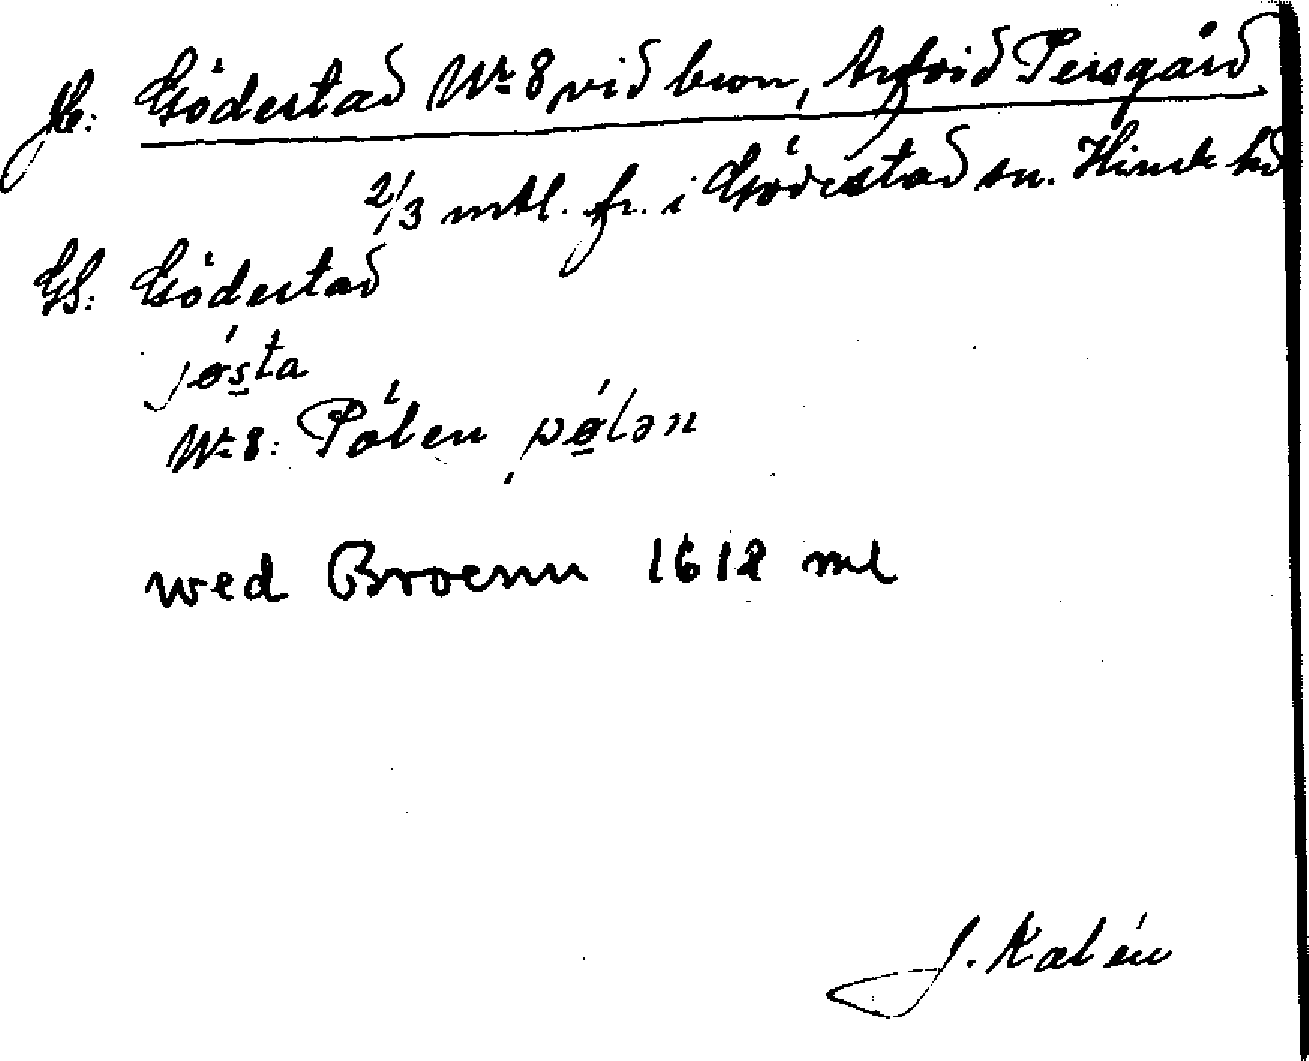 Jb: Gödestad Nr 8 vid bron, Arfvid Persgård
2/3 mtl. fr. i Gödestad sn. Himle hd
GS: Gödestad
jøsta
Nr 8: Pålen, pølən
wed Broenn 1618 ml
J. Kalén